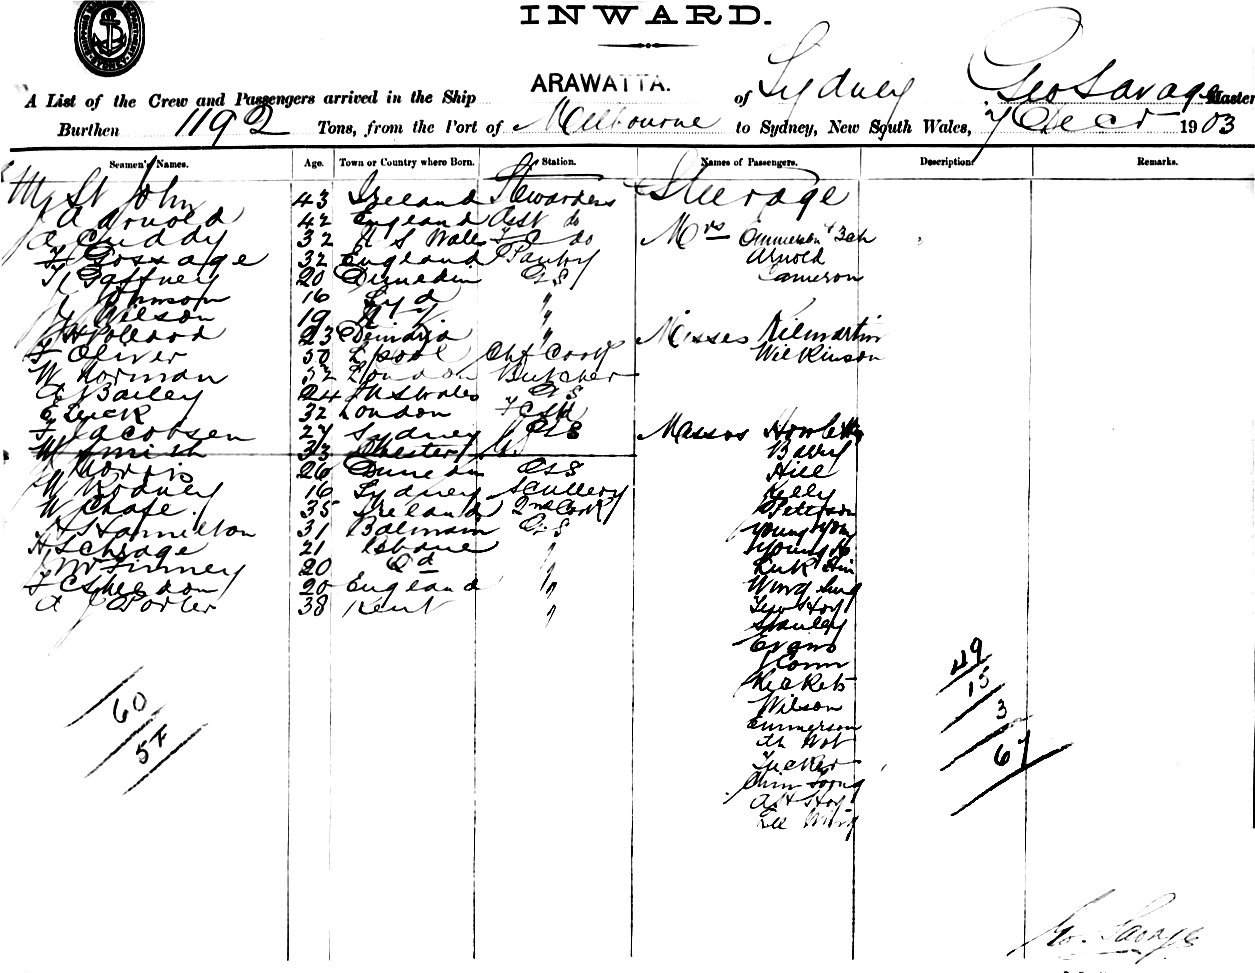 INWARD.
A List of the Crew and Passengers arrived in the Ship ARAWATTA. of Sydney Geo Savage Master
Burthen 1192 Tons, from the Port of Melbourne to Sydney, New South Wales, 7 Decr 1903
Seamen's Names. Age. Town or Country where Born. Station. Names of Passengers. Descriptions Remarks.
M St John 43 Ireland Stewardess Steerage
A Arnold 42 England Asst do
A Cuddy 32 N S Wales do Mrs Emmerson
F Gossage 32 England Pantry Arnold
T Gaffney 20 Dunedin GS Cameron
Johnson 16 Syd "
Wilson 19 "
Pollard 23 "
Misses Kilmartin
F Oliver 50 L'pool Chf Cook Wilkinson
W Norman 52 London Butcher
Bailey 24 N S Wales GS
E Quick 32 London
F Jacobsen 27 Sydney GS Messrs Howlett
W Smith 33 Chester
Barry
Morris 26 Dunedin GS Hill
W Rodney 16 Sydney Scullery Kelly
W Chase 35 Ireland 2nd Cook Peterson
H Hamilton 31 Balmain GS Young
H Schrage 21 "
Young
McFinney 20 Qd "
F C Sheldon 20 England "
Wing Sung
A J Porter 38 Kent "
Stanley
Evans
Conn
Rickets
Wilson
Emmerson
Ah Hot
Tucker
Ah Hoy
Lee Wing
49
15
3
67
60
57
Geo. Savage